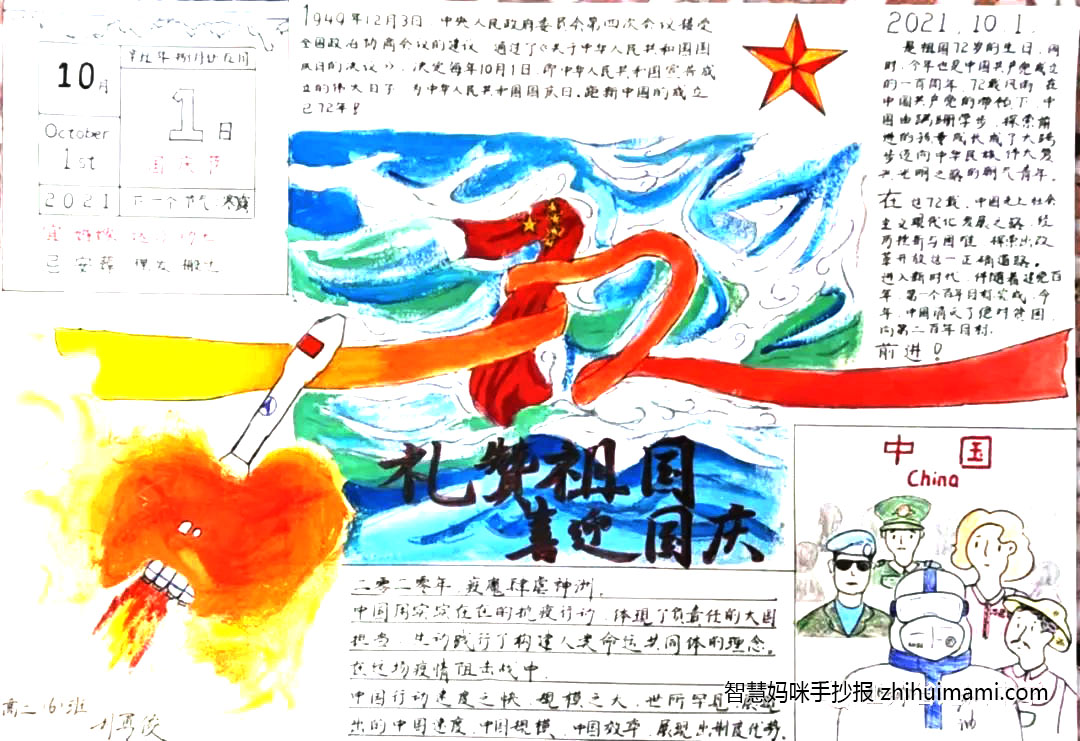 10月
October
1st
2021
1日
国庆节
下一个节气:寒露
1949年12月3日,中央人民政府委员会第四次会议接受
全国政治协商会议的建议,通过了《关于中华人民共和国国
庆日的决议》,决定每年10月1日,即中华人民共和国宣告成
立的伟大日子,为中华人民共和国国庆日。距新中国的成立
已72年!
2021.10.1.
是祖国72岁的生日,同
时,今年也是中国共产党成立
的一百周年,72载风雨,在
中国共产党的带领下,中
国由蹒跚学步,探索前
进的孩童成长成了大踏
步迈向中华民族伟大复
兴光明之路的朝气青年。
在这72载,中国走上社会
主义现代化发展之路,经
历挫折与困难,探索出改
革开放这一正确道路。
进入新时代,伴随着建党百
年,第一个百年目标实现,今
年,中国消灭了绝对贫困,
向第二百年目标,
前进!
礼赞祖国
喜迎国庆
二零二零年,疫魔肆虐神洲,
中国用实实在在的抗疫行动,体现了负责任的大国
担当,生动践行了构建人类命运共同体的理念。
在这场疫情阻击战中,
中国行动速度之快,规模之大,世所罕见,展现
出的中国速度,中国规模,中国效率,展现出制度优势。
中国
China
高二(6)班
智慧妈咪手抄报 zhihuimami.com